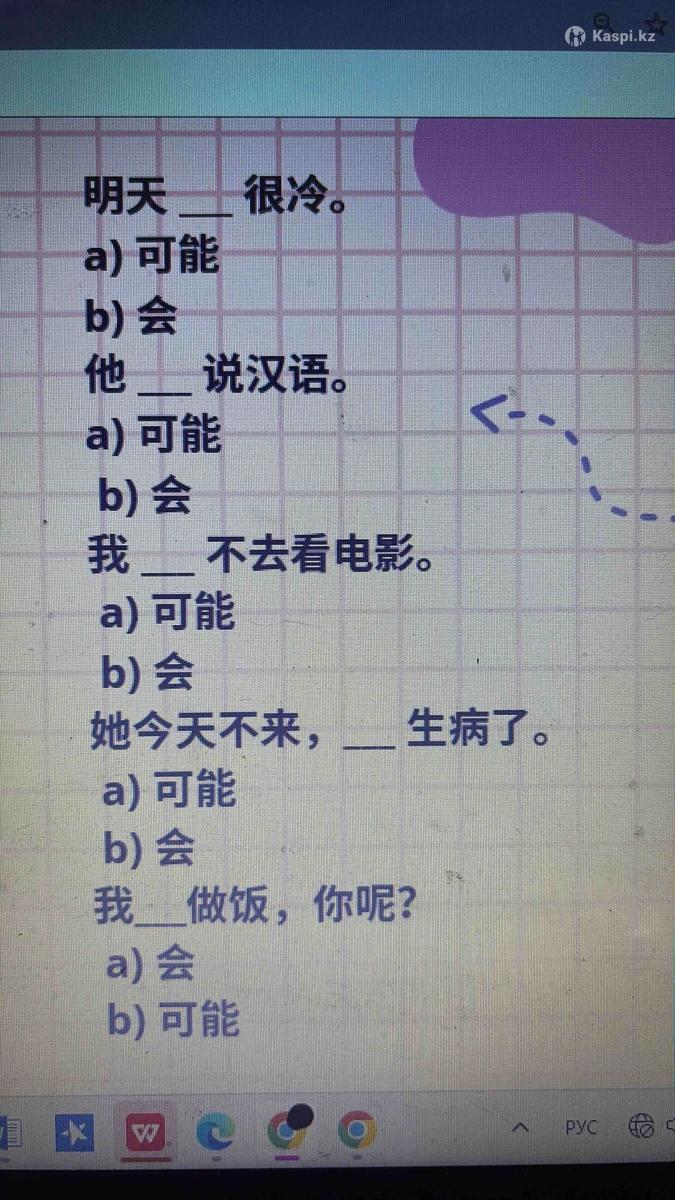 Kaspi.kz
明天 ___ 很冷。
a) 可能
b) 会
他 ___ 说汉语。
a) 可能
b) 会
我 ___ 不去看电影。
a) 可能
b) 会
她今天不来，___ 生病了。
a) 可能
b) 会
我___做饭，你呢？
a) 会
b) 可能
РУС